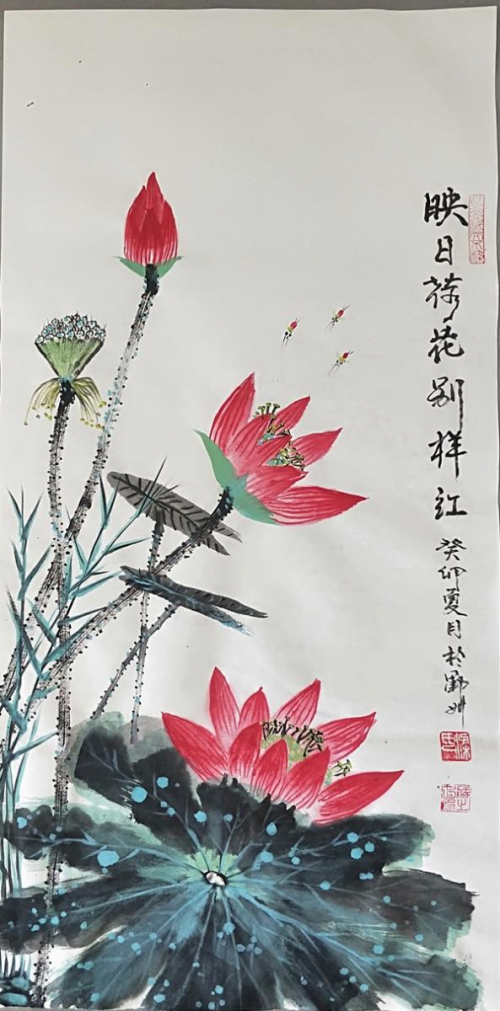 映日荷花别样红
癸卯夏月於郑州